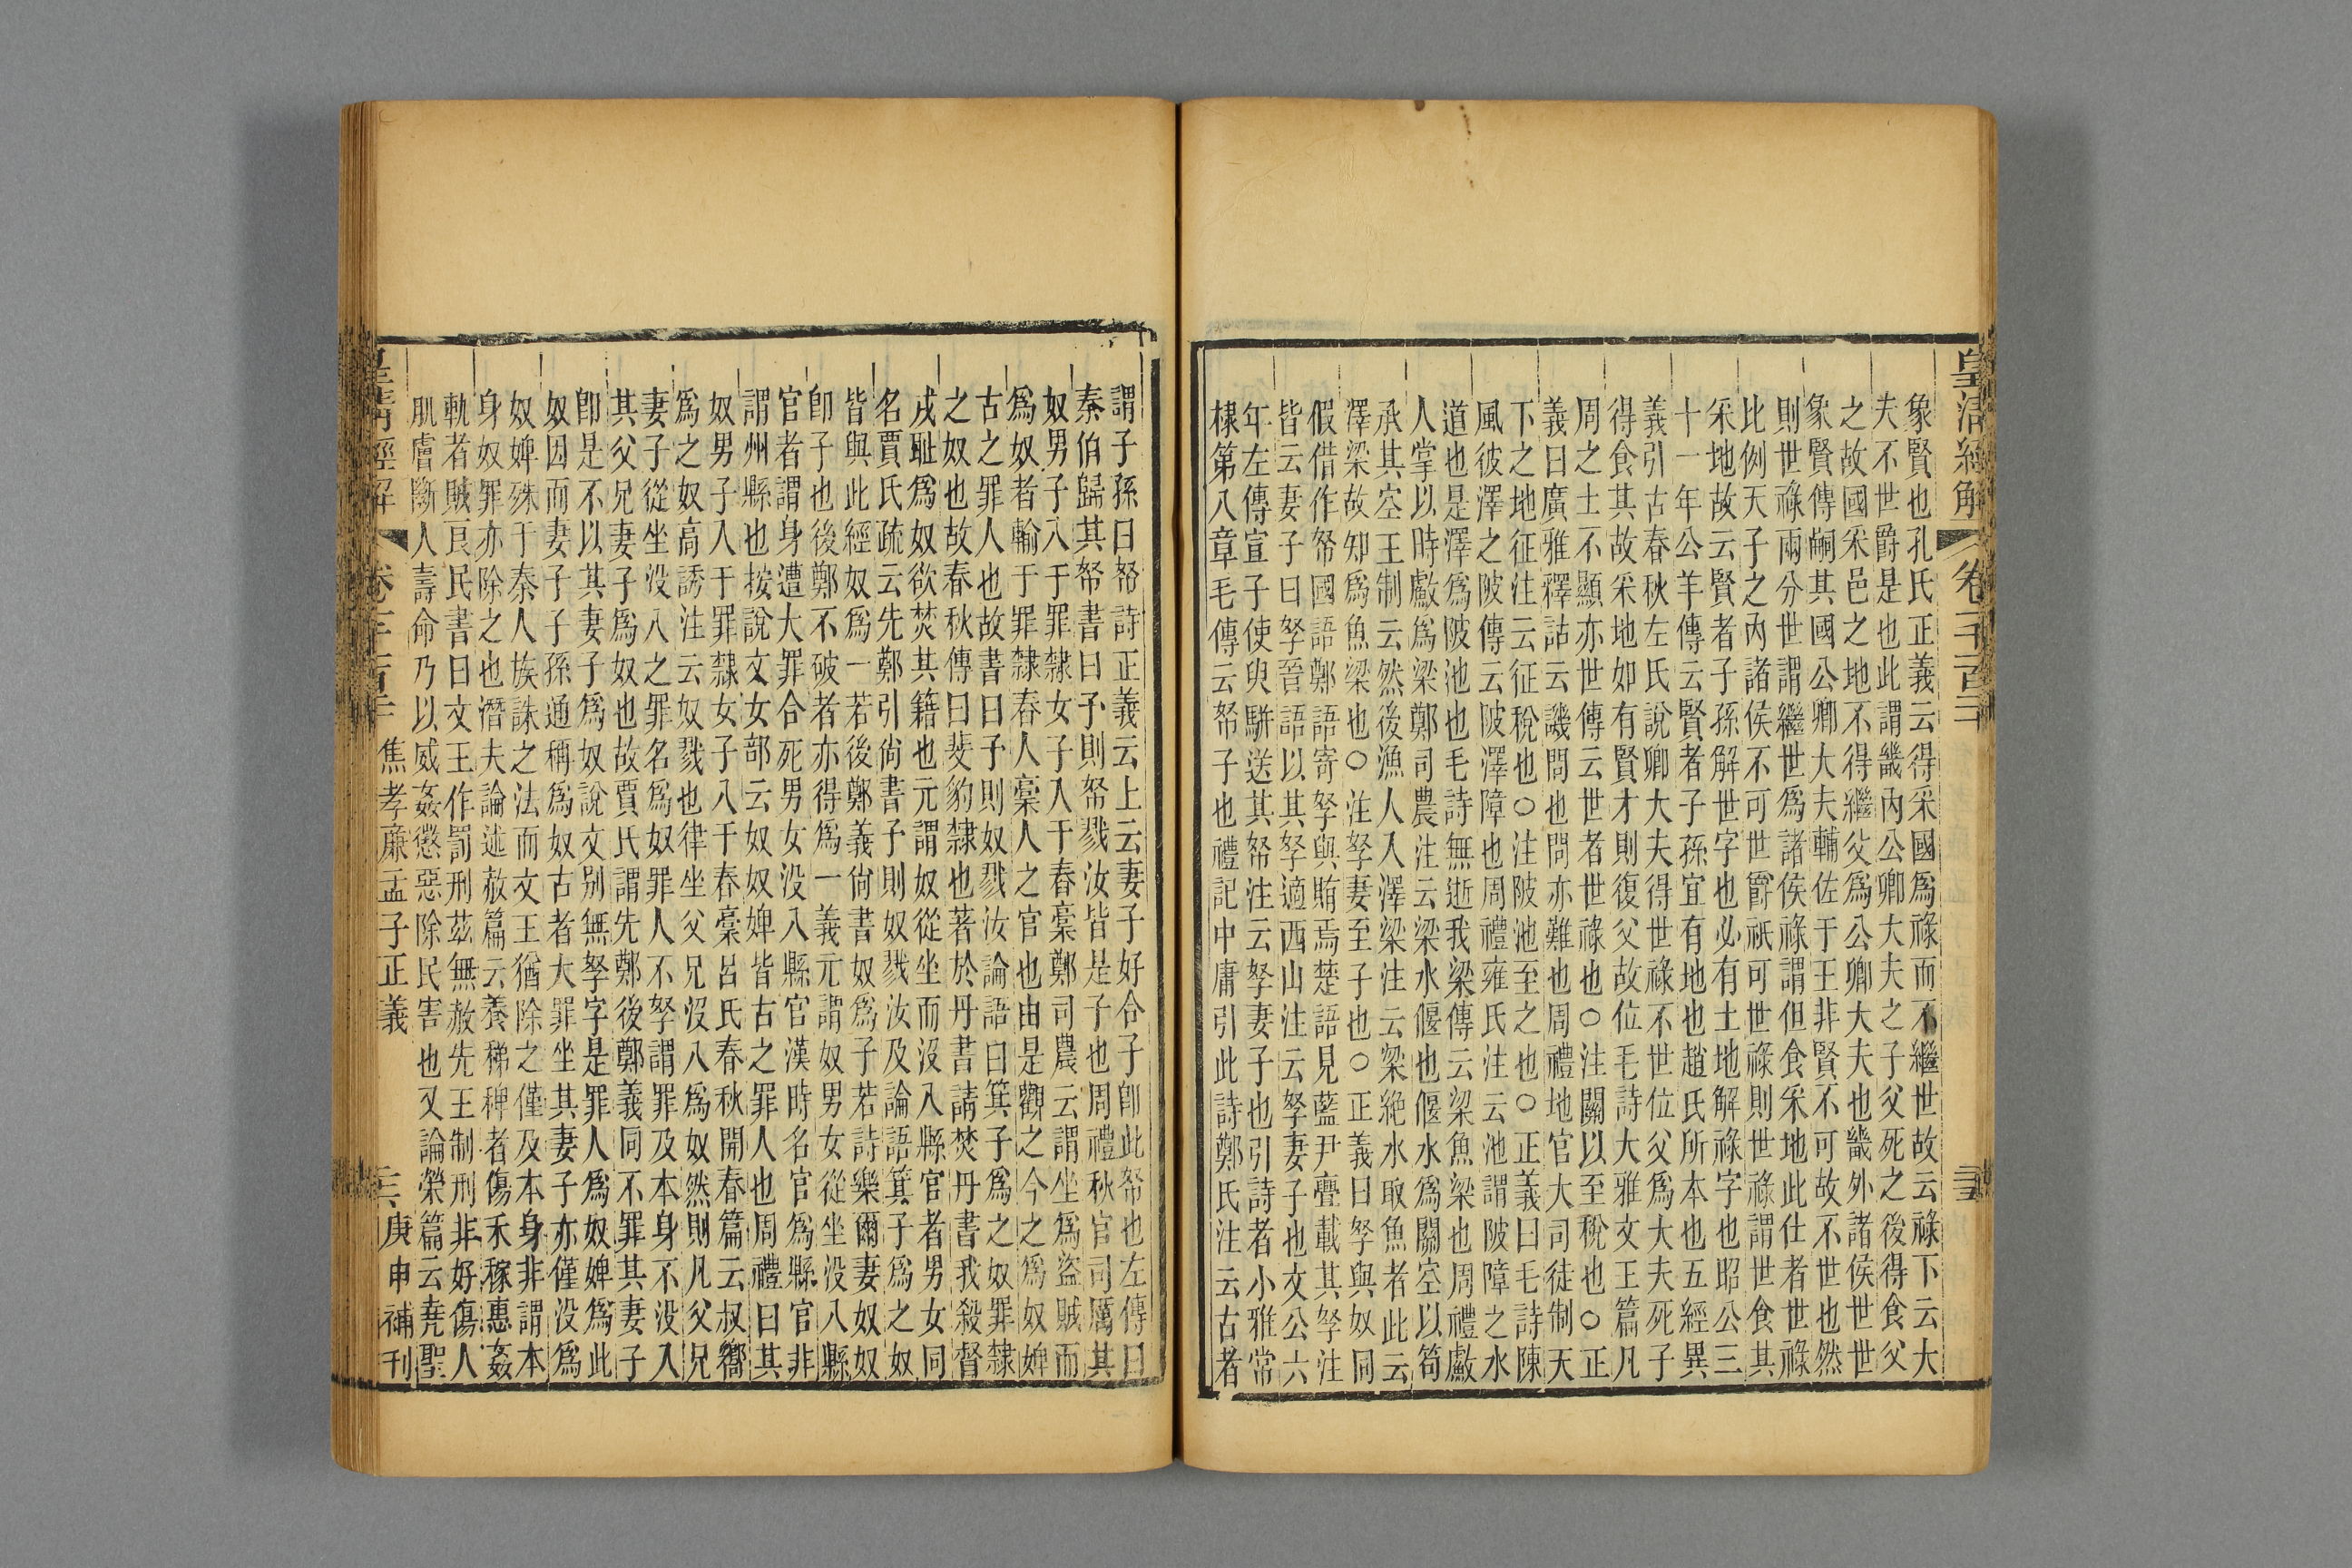 皇清經解
卷一千一百二十
象賢也孔氏正義云得采國爲祿而不繼世故云祿下云大
夫不世爵是也此謂畿內公卿大夫之子父死之後得食父
之故國采邑之地不得繼父爲公卿大夫也畿外諸侯世世
象賢傳嗣其國公卿大夫輔佐于王非賢不可故不世也然
則世祿兩分世謂繼世爲諸侯祿謂但食采地此仕者世祿
比例天子之內諸侯不可世爵祇可世祿則世祿謂世食其
采地故云賢者子孫解世字也必有土地解祿字也昭公三
十一年公羊傳云賢者子孫宜有地也趙氏所本也五經異
義引古春秋左氏說卿大夫得世祿不世位父爲大夫死子
得食其故采地如有賢才則復父故位毛詩大雅文王篇凡
周之士不顯亦世傳云世者世祿也○注關以至稅也○正
義曰廣雅釋詁云譏問也問亦難也周禮地官大司徒制天
下之地征注云征稅也○注陂池至之也○正義曰毛詩陳
風彼澤之陂傳云陂澤障也周禮雍氏注云池謂陂障之水
道也是澤爲陂池也毛詩無逝我梁傳云梁魚梁也周禮䱷
人掌以時䱷爲梁鄭司農注云梁水偃也偃水爲關空以笱
承其空王制云然後漁人入澤梁注云梁絶水取魚者此云
澤梁故知爲魚梁也○注孥妻至子也○正義曰孥與奴同
假借作帑國語鄭語寄孥與賄焉楚語見藍尹亹載其孥注
皆云妻子曰孥晉語以其孥適西山注云孥妻子也文公六
年左傳宣子使臾駢送其帑注云孥妻子也引詩者小雅常
棣第八章毛傳云帑子也禮記中庸引此詩鄭氏注云古者
謂子孫曰帑詩正義云上云妻子好合子卽此帑也左傳曰
秦伯歸其帑書曰予則帑戮汝皆是子也周禮秋官司厲其
奴男子入于罪隸女子入于舂槀鄭司農云謂坐爲盜賊而
爲奴者輸于罪隸舂人槀人之官也由是觀之今之爲奴婢
古之罪人也故書曰予則奴戮汝論語曰箕子爲之奴罪隸
之奴也故春秋傳曰斐豹隸也著於丹書請焚丹書我殺督
戎恥爲奴欲焚其籍也元謂奴從坐而沒入縣官者男女同
名賈氏疏云先鄭引尙書予則奴戮汝及論語箕子爲之奴
皆與此經奴爲一若後鄭義尙書奴爲子若詩樂爾妻奴奴
卽子也後鄭不破者亦得爲一義元謂奴男女從坐沒入縣
官者謂身遭大罪合死男女沒入縣官漢時名官爲縣官非
謂州縣也按說文女部云奴奴婢皆古之罪人也周禮曰其
奴男子入于罪隸女子入于舂槀呂氏春秋開春篇云叔嚮
爲之奴高誘注云奴戮也律坐父兄沒入爲奴然則凡父兄
妻子從坐沒入之罪名爲奴罪人不孥謂罪及本身不沒入
其父兄妻子爲奴也故賈氏謂先鄭後鄭義同不罪其妻子
卽是不以其妻子爲奴說文別無孥字是罪人爲奴婢爲此
奴因而妻子子孫通稱爲奴古者大罪坐其妻子亦僅沒爲
奴婢殊于秦人族誅之法而文王猶除之僅及本身非謂本
身奴罪亦除之也潛夫論述赦篇云養稊稗者傷禾稼惠姦
軌者賊良民書曰文王作罰刑茲無赦先王制刑非好傷人
肌膚斷人壽命乃以威姦懲惡除民害也又論榮篇云堯聖
焦孝廉孟子正義
庚申補刊